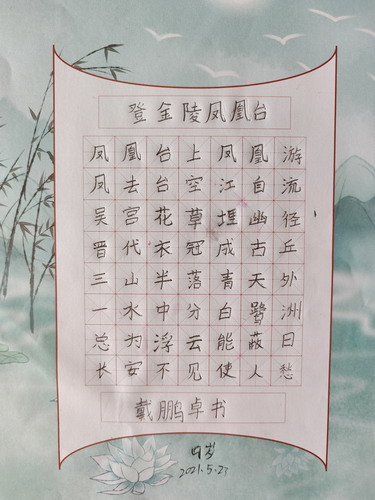 登金陵凤凰台
凤凰台上凤凰游
凤去台空江自流
吴宫花草埋幽径
晋代衣冠成古丘
三山半落青天外
一水中分白鹭洲
总为浮云能蔽日
长安不见使人愁
戴鹏卓书
9岁
2021.5.23